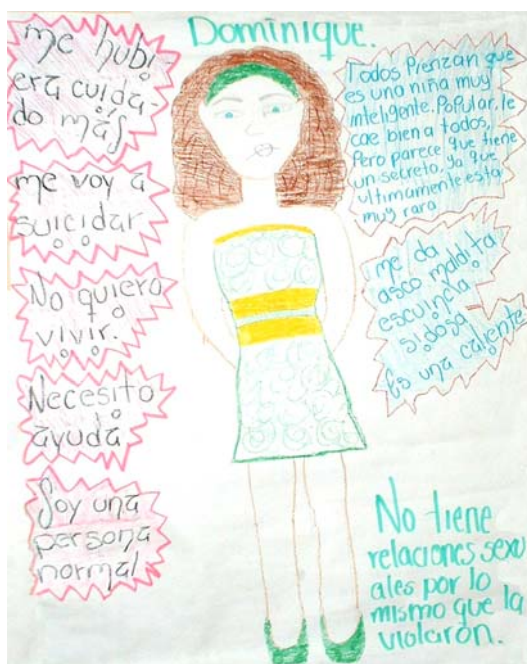 Dominique.
me hubi
era cuida-
do más
me voy a
suicidar
No quiero
vivir.
Necesito
ayuda
Soy una
persona
normal
Todos Pienzan que
es una niña muy
inteligente. Popular, le
cae bien a todos,
Pero parece que tiene
un secreto, ya que
ultimamente esta
muy rara
me da
asco maldita
escuincla
sidosa
Es una caliente
No tiene
relaciones sexu
ales por lo
mismo que la
violaron.